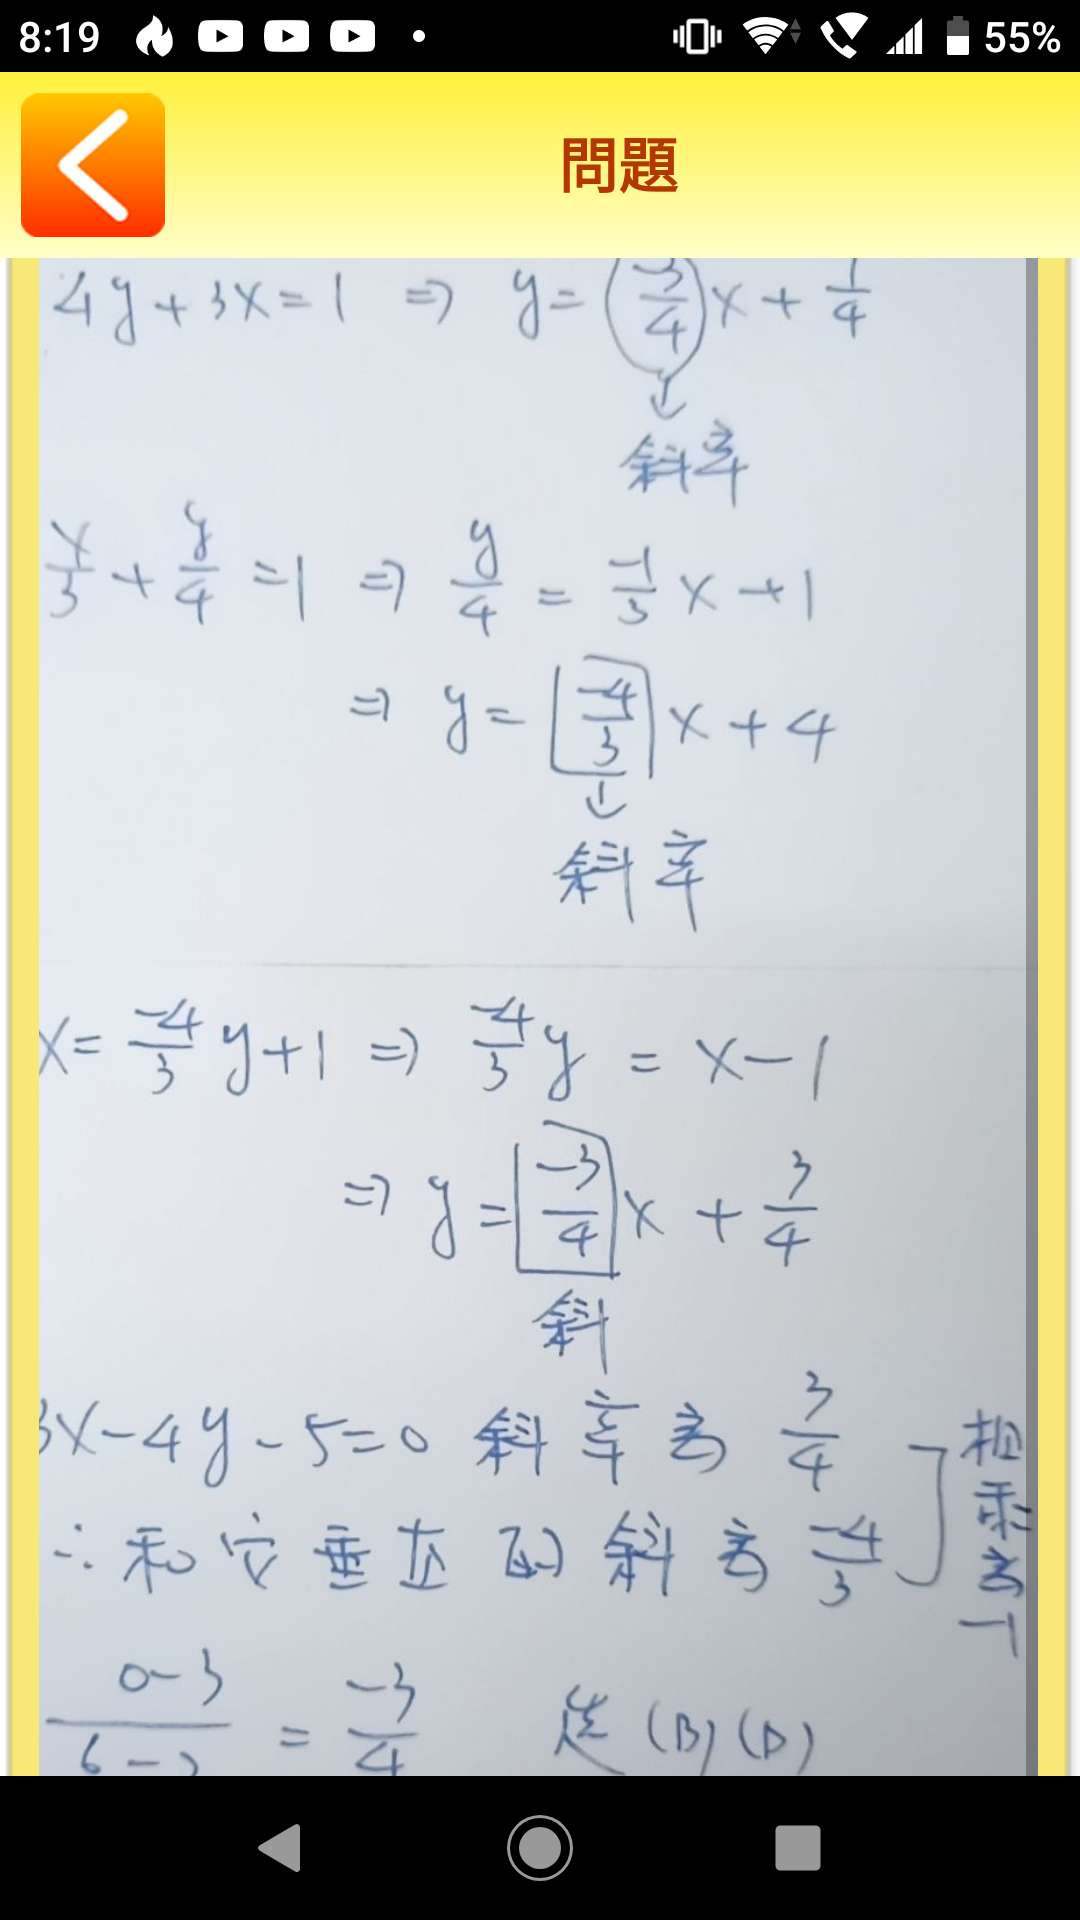 8:19 55%
問題
4y+3x=1 ⇒ y=(-3/4)x+1/4
斜率
x/3+y/4=1 ⇒ y/4=-1/3x+1
⇒ y=[-4/3]x+4
斜率
x=-4/3y+1 ⇒ -4/3y=x-1
⇒ y=[-3/4]x+3/4
斜
3x-4y-5=0 斜率為 3/4
∴和它垂直的斜為 -4/3
相乘為-1
0-3/6-2=-3/4 選(B)(D)